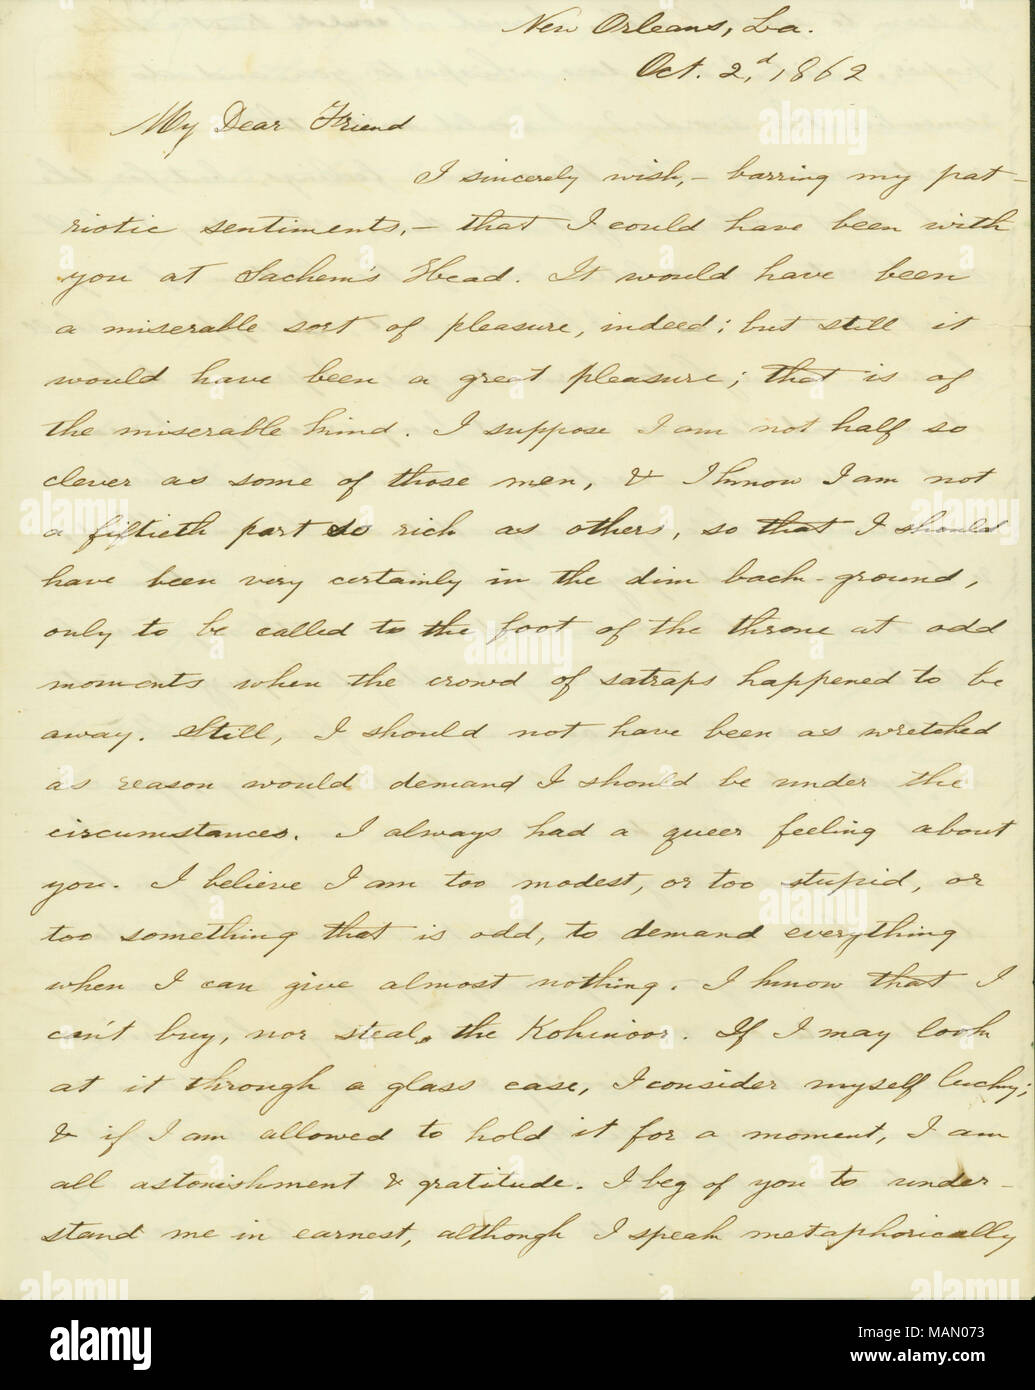 New Orleans, La.
Oct. 2,d 1862
My Dear Friend
I sincerely wish, – barring my pat-
riotic sentiments, – that I could have been with
you at Sachem's Head. It would have been
a miserable sort of pleasure, indeed; but still it
would have been a great pleasure; that is of
the miserable kind. I suppose I am not half so
clever as some of those men, & I know I am not
a fiftieth part so rich as others, so that I should
have been very certainly in the dim back-ground,
only to be called to the foot of the throne at odd
moments when the crowd of satraps happened to be
away. Still, I should not have been as wretched
as reason would demand I should be under the
circumstances. I always had a queer feeling about
you. I believe I am too modest, or too stupid, or
too something that is odd, to demand everything
when I can give almost nothing. I know that I
can't buy, nor steal, the Kohinoor. If I may look
at it through a glass case, I consider myself lucky;
& if I am allowed to hold it for a moment, I am
all astonishment & gratitude. I beg of you to under-
stand me in earnest, although I speak metaphorically
alamy
Image ID: MAN073
www.alamy.com